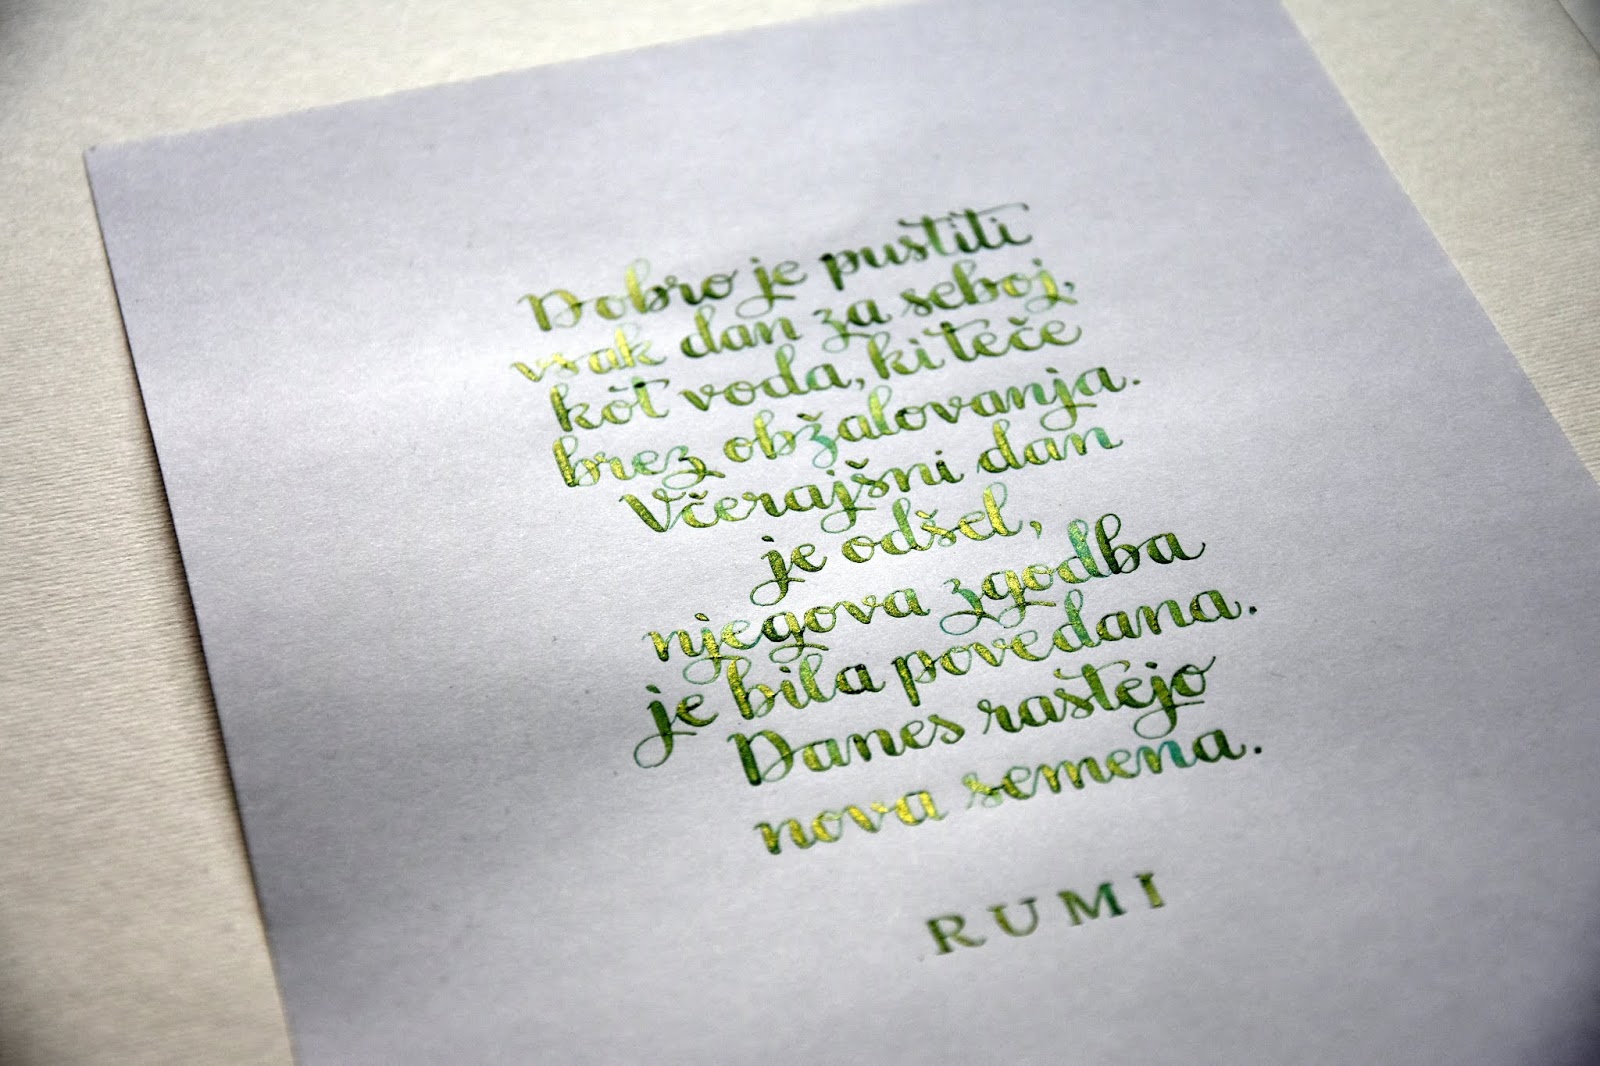 Dobro je pustiti
vsak dan za seboj,
kot voda, ki teče
brez obžalovanja.
Včerajšni dan
je odšel,
njegova zgodba
je bila povedana.
Danes rastejo
nova semena.
RUMI